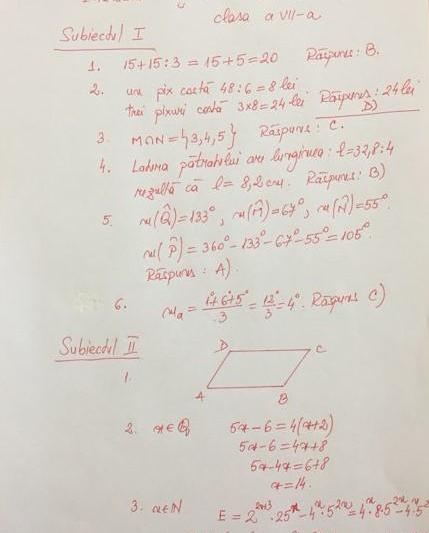 clasa a VII-a
Subiectul I
1. 15+15:3 = 15+5=20 Răspuns: B.
2. un pix costă 48:6=8 lei
trei pixuri costă 3×8=24 lei Răspuns: 24 lei
D)
3. M∩N={3,4,5} Răspuns: C.
4. Latura pătratului are lungimea: l=32,8:4
rezultă că l= 8,2 cm. Răspuns: B)
5. m(Q̂)=133°, m(M̂)=67°, m(N̂)=55°
m(P̂)=360°-133°-67°-55°=105°.
Răspuns: A).
6. m_a = (1+6+5)/3 = 12/3 = 4. Răspuns C)
Subiectul II
1. D C
A B
2. x∈Q 5x-6=4(x+2)
5x-6=4x+8
5x-4x=6+8
x=14.
3. x∈N E = 2^(2x+3)·25^x-4^x·5^(2x)=4^x·8·5^(2x)-4^x·5